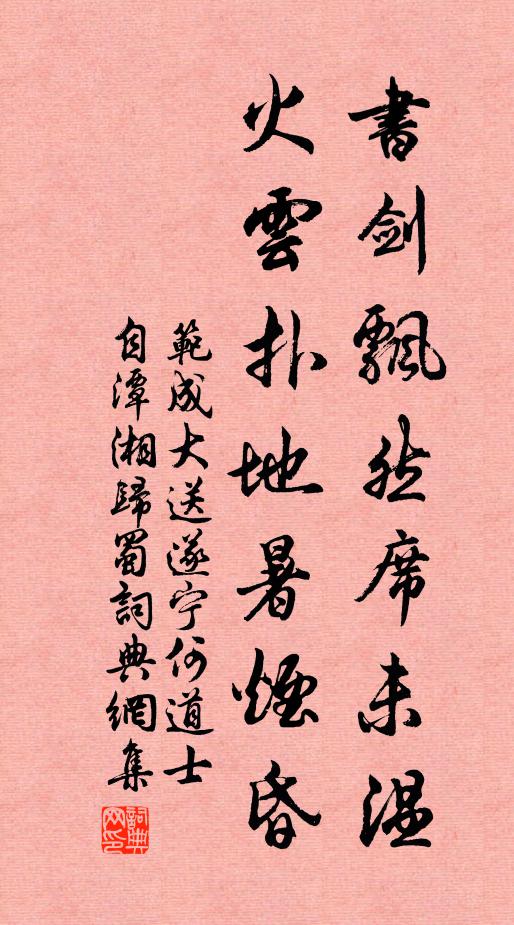 書劍飄然席未温
火雲扑地暑煙昏
範成大送遂宁何道士
自潭湘歸蜀詞典網集
詞典
网印